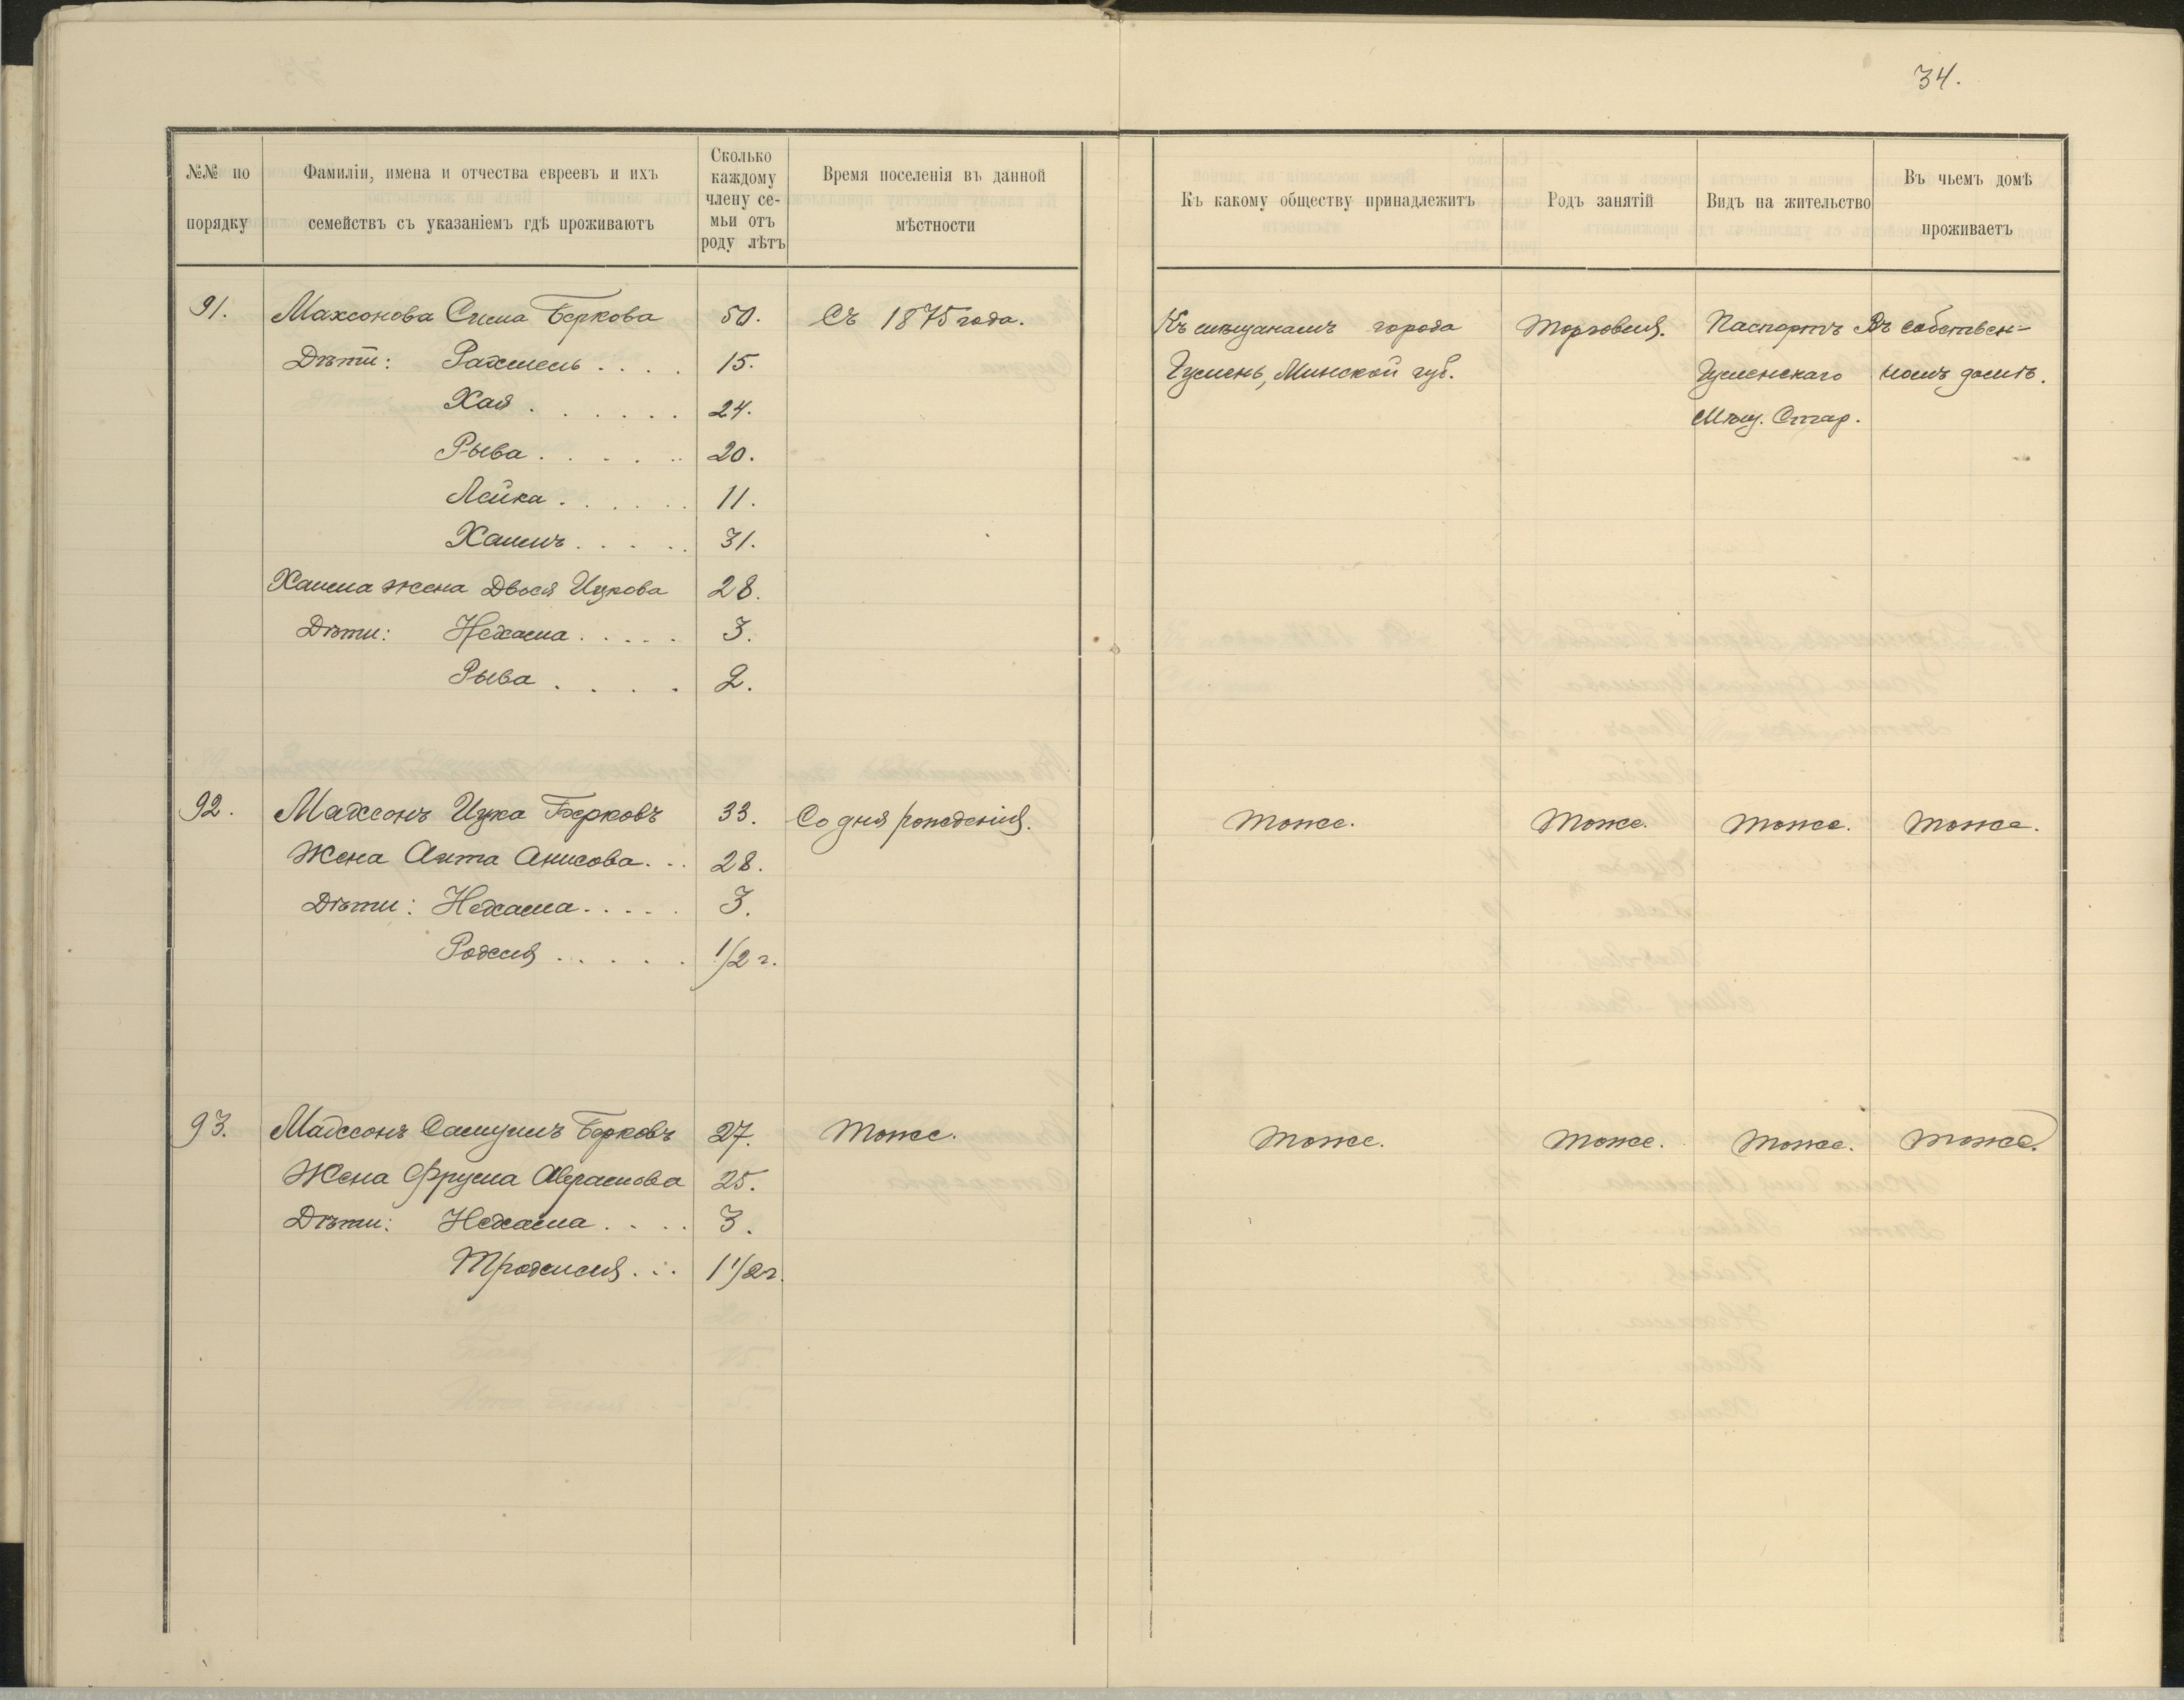 34.
№№ по порядку
Фамиліи, имена и отчества евреевъ и ихъ семействъ съ указаніемъ гдѣ проживаютъ
Сколько каждому члену се-мьи отъ роду лѣтъ
Время поселенія въ данной мѣстности
Къ какому обществу принадлежитъ
Родъ занятій
Видъ на жительство
Въ чьемъ домѣ проживаетъ
91. Махсонова Сима Беркова 50. Съ 1875 года. Къ мѣщанамъ города Торговля. Паспортъ Въ собствен-
Дѣти: Рахмель . . . . 15. Игумень, Минской губ. Игуменскаго номъ домѣ.
Хая . . . . . . 24. Мѣщ. Стар.
Рыва . . . . . 20.
Лейка . . . . . . 11.
Хаимъ . . . . . 31.
Хаима жена Двося Ицкова 28.
Дѣти: Нехама . . . . . 3.
Рыва . . . . 2.
92. Махсонъ Ицка Берковъ 33. Со дня рожденія. Тоже. Тоже. Тоже. Тоже.
Жена Анисова . . . 28.
Дѣти: Нехама . . . . . 3.
1/2 г.
93. Махсонъ Самуилъ Берковъ 27. Тоже. Тоже. Тоже. Тоже. Тоже.
Жена Фрума Абрамова 25.
Дѣти: Нехама . . . . 3.
1 1/2 г.